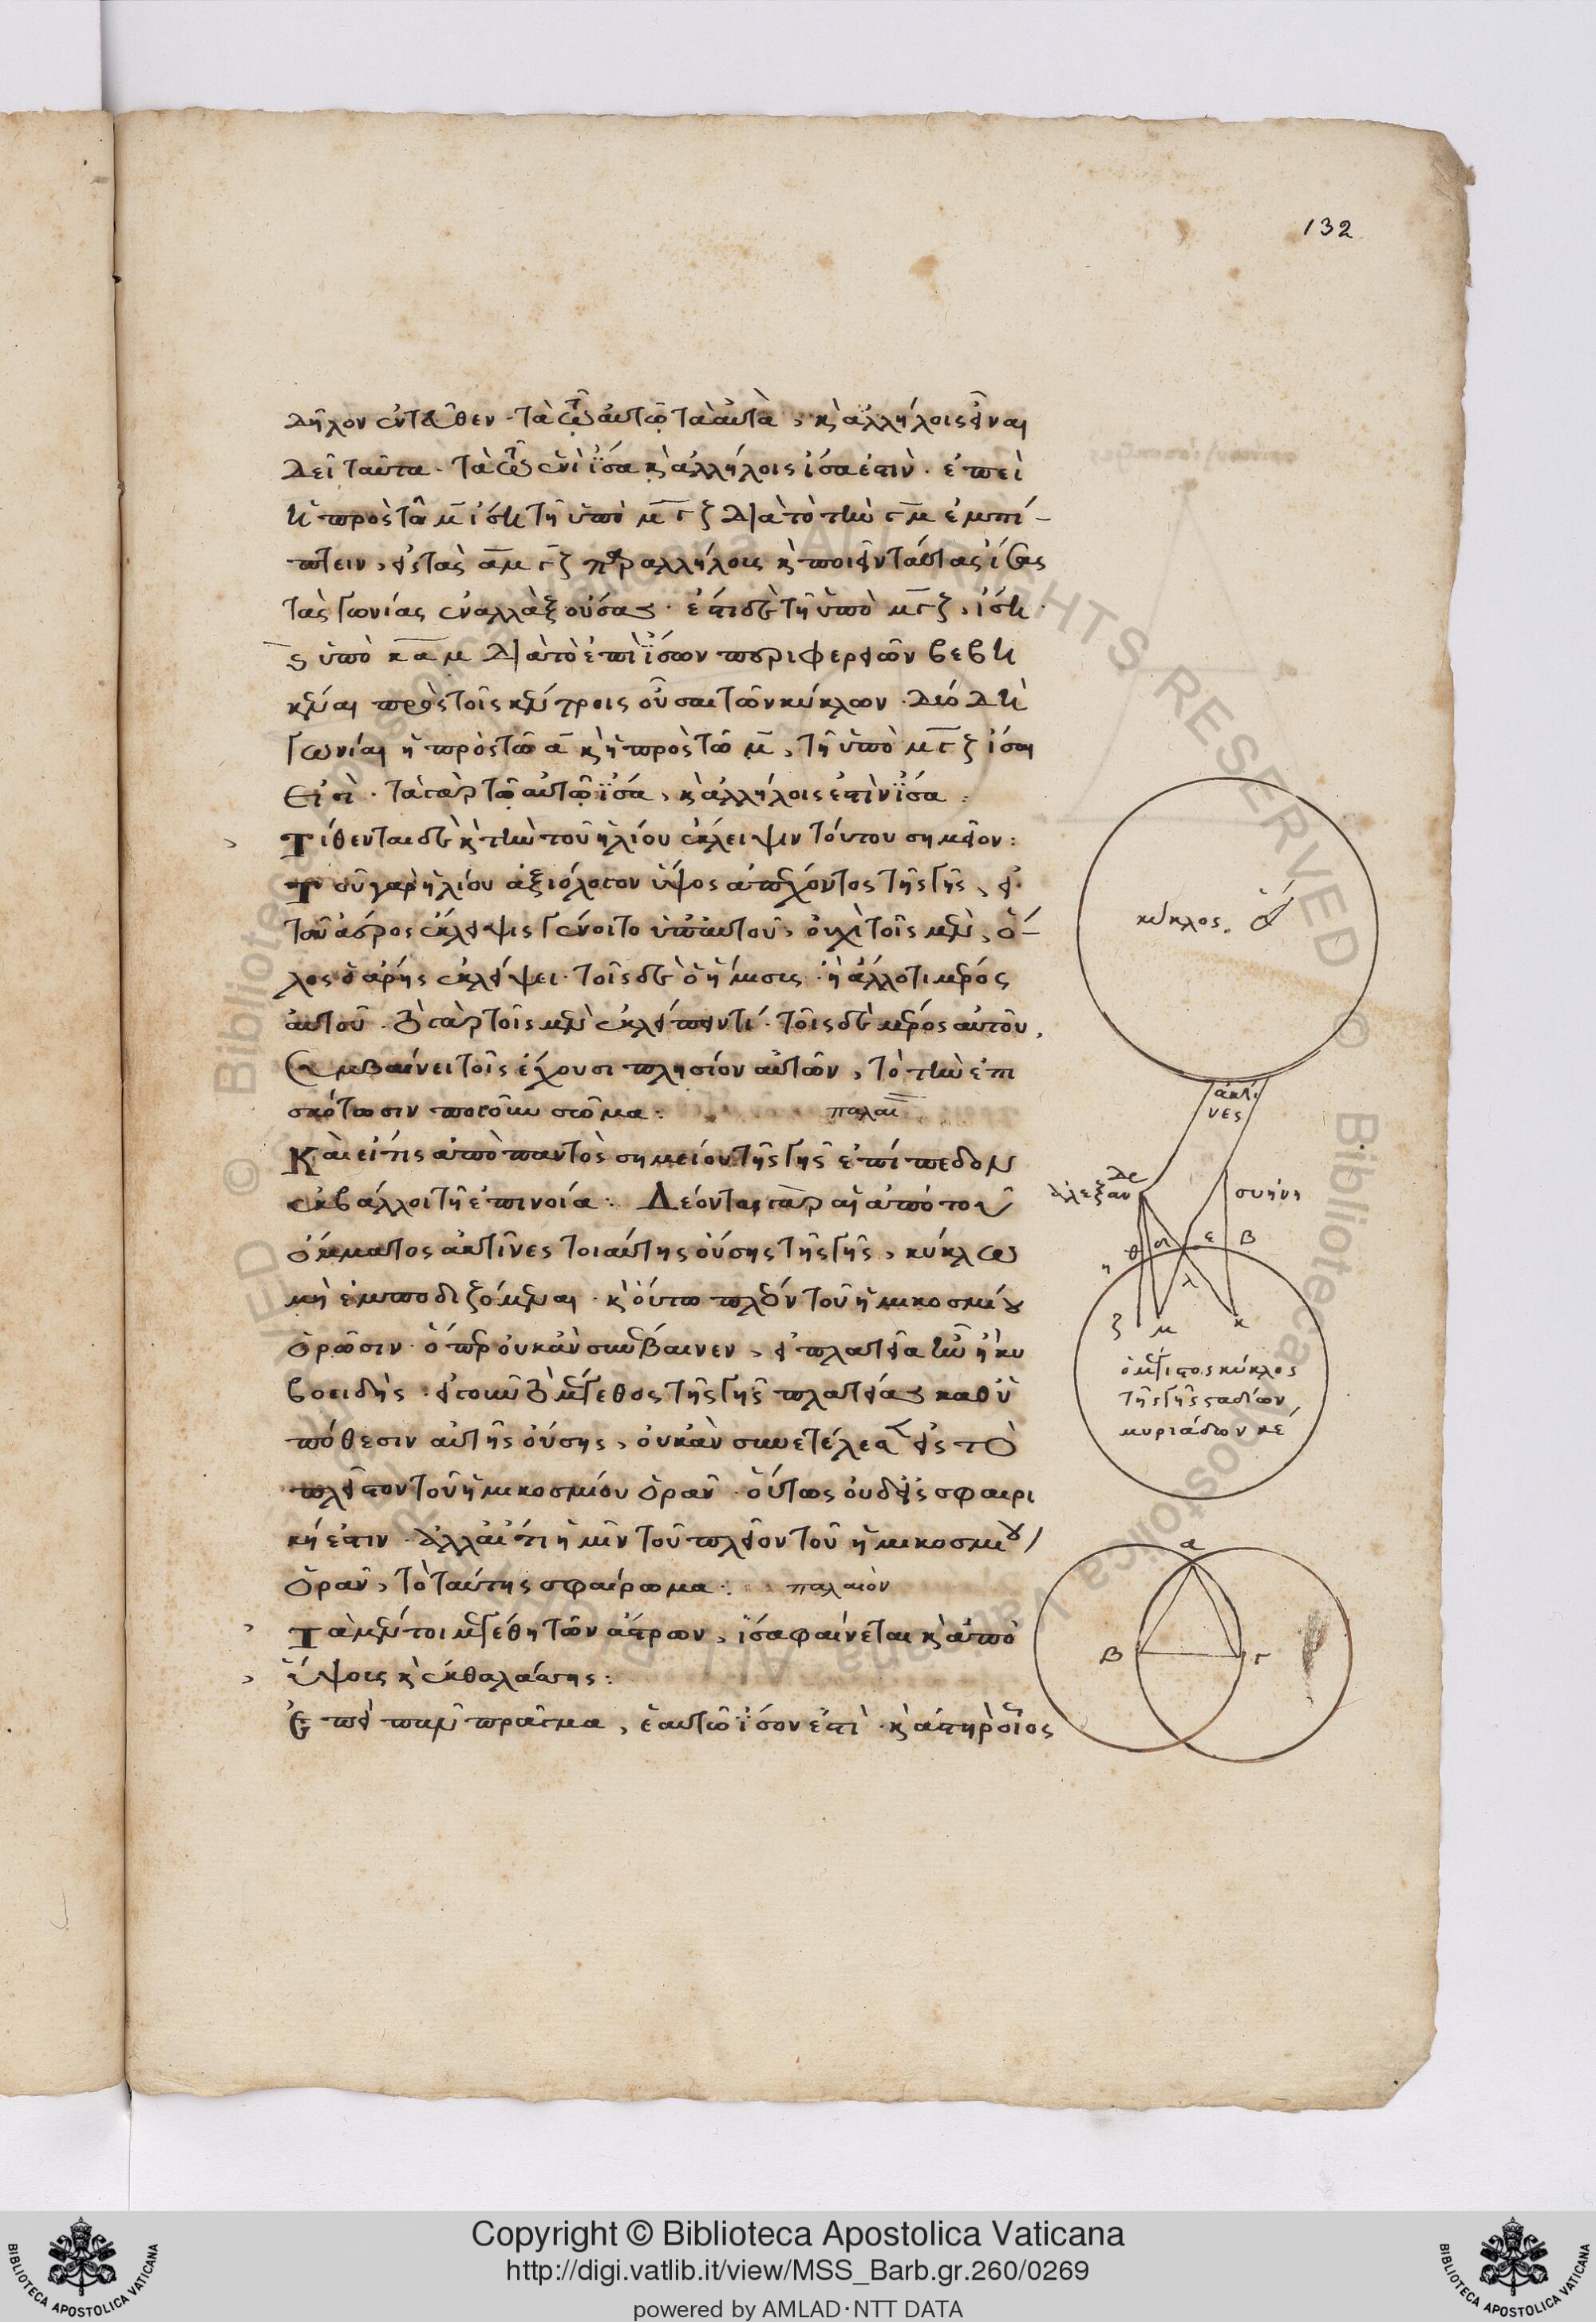 132
δῆλον ἐντεῦθεν· τὰ τῷ αὐτῷ τὰ αὐτὰ, καὶ ἀλλήλοις εἶναι
δεῖ ταῦτα· τὰ τῷ ἑνὶ ἴσα καὶ ἀλλήλοις ἴσα ἐστὶν· ἐπεὶ
ἡ πρὸς τῶ μ ἴση τῆ ὑπὸ μγζ διὰ τὸ τὴν γμ ἐμπί-
πτειν, εἰς τὰς αμ γζ παραλλήλοις καὶ ποιεῖν ταύτας ἴσας
τὰς γωνίας ἐναλλὰξ οὔσας· ἔστι δὲ τῆ ὑπὸ μγζ, ἴση·
ὑπὸ καμ διὰ τὸ ἐπὶ ἴσων περιφερειῶν βεβη
κέναι πρὸς τοῖς κέντροις οὖσαι τῶν κύκλων· διὸ δὴ
γωνίαι ἡ πρὸς τῶ α καὶ ἡ πρὸς τῶ μ, τῆ ὑπὸ μγζ ἴσαι
εἰσὶ· τὰ γὰρ τῷ αὐτῷ ἴσα, καὶ ἀλλήλοις ἐστὶν ἴσα:
Τίθενται δὲ καὶ τὴν τοῦ ἡλίου ἔκλειψιν τούτου σημεῖον:
Τοῦ γὰρ ἡλίου ἀξιόλογον ὕψος ἀπέχοντος τῆς γῆς, εἰ
τοῦ ἄστρος ἔκλειψις γένοιτο ὑπ' αὐτοῦ, οὐχὶ τοῖς μὲν, ὅ-
λος ὁ ἀστὴρ ἐκλείψει· τοῖς δὲ ὁ ἥμισις· ἢ ἄλλο τι μέρος
αὐτοῦ· ὁ γὰρ τοῖς μὲν ἐκλείπειν τί· τοῖς δὲ μέρος αὐτοῦ,
συμβαίνει τοῖς ἔχουσι πλησίον αὐτῶν, τὸ τὴν ἐπι
σκότωσιν ποιοῦν σῶμα: παλαι
Καὶ εἴ τις ἀπὸ παντὸς σημείου τῆς γῆς ἐπίπεδον
ἐκβάλλοι τῆ ἐπινοία: Δέονται γὰρ αἱ ἀπὸ τοῦ
ὄμματος ἀκτῖνες τοιαύτης οὔσης τῆς γῆς, κύκλω
μὴ ἐμποδιζόμεναι· καὶ οὕτω πλέον τοῦ ἡμικοσμίου
ὁρῶσιν· ὅπερ οὐκ ἂν συνέβαινεν, εἰ πλατεῖα ἦν ἢ κυ
βοειδὴς· εἰ τοίνυν ὁ μέγεθος τῆς γῆς πλατείας καθ' ὑ
πόθεσιν αὐτῆς οὔσης, οὐκ ἂν συνετέλεσεν εἰς τὸ
πλεῖστον τοῦ ἡμικοσμίου ὁρᾶν· οὕτως οὐδ' εἰς σφαιρι
κή ἐστιν· ἀλλ' αἴτιον ἡμῖν τοῦ πλεῖον τοῦ ἡμικοσμίου
ὁρᾶν, τὸ ταύτης σφαίρωμα: παλαιὸν
Τὰ μέντοι μεγέθη τῶν ἄστρων, ἴσα φαίνεται καὶ ἀπὸ
ὕψοις καὶ ἐκ θαλάσσης:
Ἐπεὶ πᾶν πρᾶγμα, ἑαυτῶ ἴσον ἐστὶ· καὶ ἀστὴρ οἷος
κύκλος.
ἀκτῖ
νες
Ἀλεξαν
δε
συήνη
η θ α ε β
λ
ζ μ κ
ὁ μέγιστος κύκλος
τῆς γῆς σταδίων
μυριάδων κε
α
β γ
Copyright © Biblioteca Apostolica Vaticana
http://digi.vatlib.it/view/MSS_Barb.gr.260/0269
powered by AMLAD·NTT DATA
BIBLIOTECA APOSTOLICA VATICANA
BIBLIOTECA APOSTOLICA VATICANA